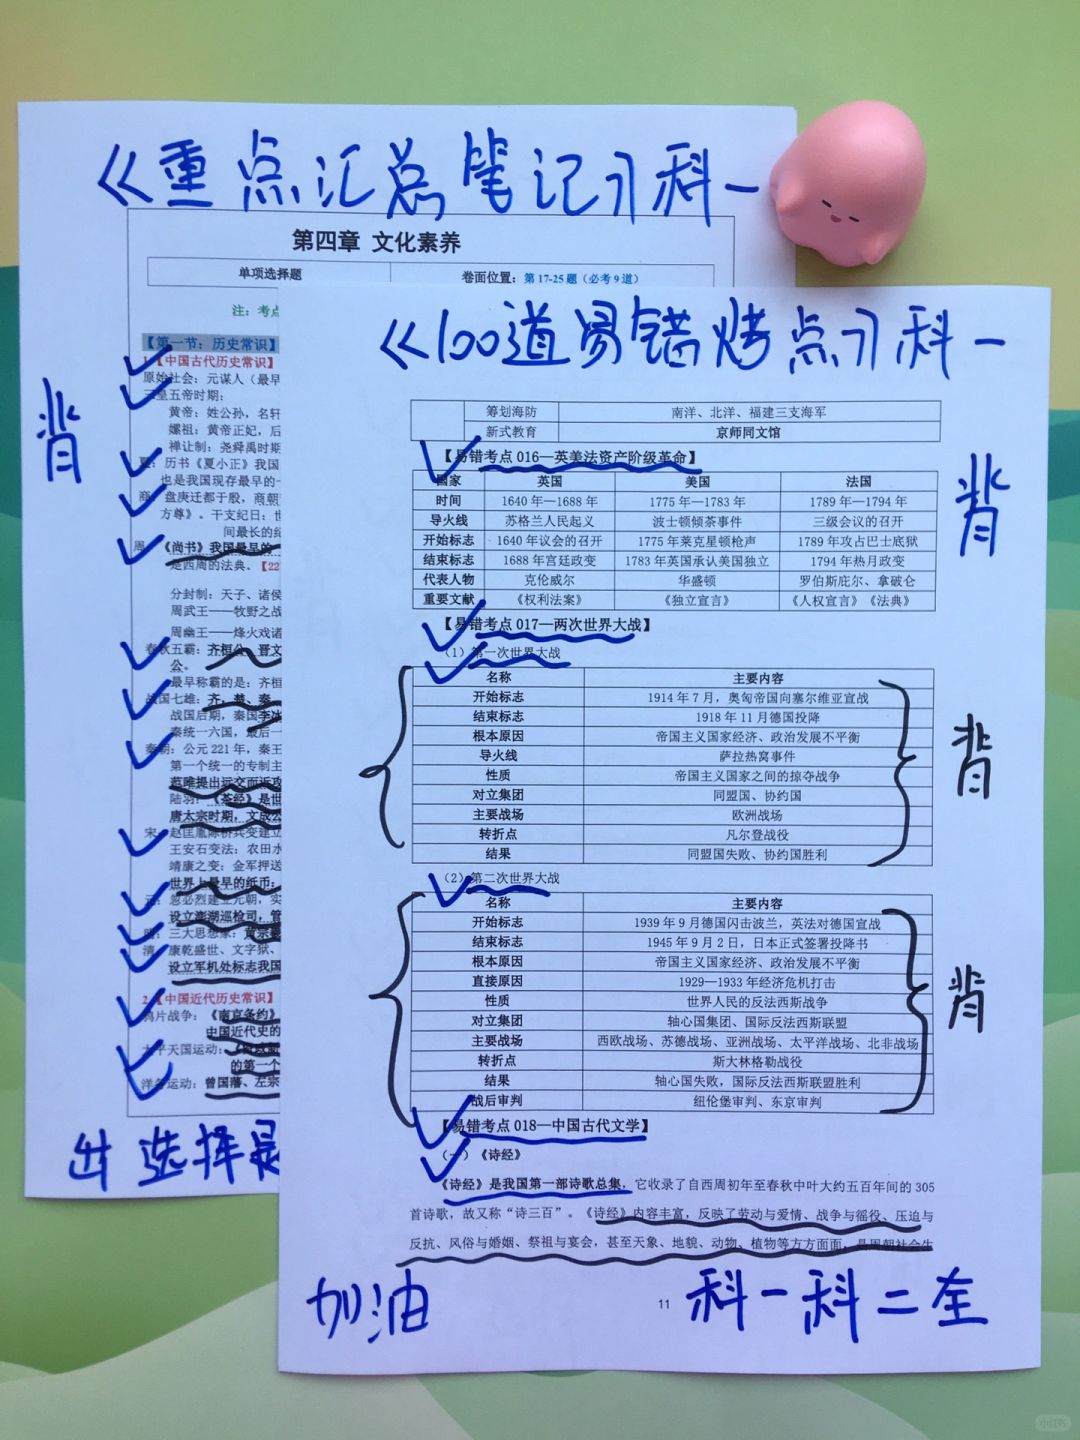 《重点汇总笔记》科一
第四章 文化素养
单项选择题 卷面位置：第17-25题（必考9道）
注：考点
【第一节：历史常识】
1.【中国古代历史常识】
原始社会：元谋人（最早
三皇五帝时期：
黄帝：姓公孙，名轩
嫘祖：黄帝正妃，后
禅让制：尧舜禹时期
夏：历书《夏小正》我国
也是我国现存最早的一
商：盘庚迁都于殷，商朝
方尊》。干支纪日：世
间最长的纪
周：《尚书》我国最早的一
是西周的法典。【22
分封制：天子、诸侯
周武王——牧野之战
周幽王——烽火戏诸
春秋五霸：齐桓公、晋文
公。
最早称霸的是：齐桓
战国七雄：齐、楚、秦
战国后期，秦国李冰
秦统一六国，最后一
秦朝：公元221年，秦王
第一个统一的专制主
范雎提出远交而近攻
陆羽：《茶经》是世
唐太宗时期，文成公
宋：赵匡胤陈桥兵变建立
王安石变法：农田水
靖康之变：金军押送
世界上最早的纸币：
元：忽必烈建立元朝，实
设立澎湖巡检司，管
明：三大思想家：黄宗羲
清：康乾盛世、文字狱、
设立军机处标志我国
2.【中国近代历史常识】
鸦片战争：《南京条约》
中国近代史的
太平天国运动：
的第一个
洋务运动：曾国藩、左宗
背
出选择是
《100道易错考点》科一
筹划海防 南洋、北洋、福建三支海军
新式教育 京师同文馆
【易错考点016—英美法资产阶级革命】
国家 英国 美国 法国
时间 1640年—1688年 1775年—1783年 1789年—1794年
导火线 苏格兰人民起义 波士顿倾茶事件 三级会议的召开
开始标志 1640年议会的召开 1775年莱克星顿枪声 1789年攻占巴士底狱
结束标志 1688年宫廷政变 1783年英国承认美国独立 1794年热月政变
代表人物 克伦威尔 华盛顿 罗伯斯庇尔、拿破仑
重要文献 《权利法案》 《独立宣言》 《人权宣言》《法典》
背
【易错考点017—两次世界大战】
（1）第一次世界大战
名称 主要内容
开始标志 1914年7月，奥匈帝国向塞尔维亚宣战
结束标志 1918年11月德国投降
根本原因 帝国主义国家经济、政治发展不平衡
导火线 萨拉热窝事件
性质 帝国主义国家之间的掠夺战争
对立集团 同盟国、协约国
主要战场 欧洲战场
转折点 凡尔登战役
结果 同盟国失败、协约国胜利
背
（2）第二次世界大战
名称 主要内容
开始标志 1939年9月德国闪击波兰，英法对德国宣战
结束标志 1945年9月2日，日本正式签署投降书
根本原因 帝国主义国家经济、政治发展不平衡
直接原因 1929—1933年经济危机打击
性质 世界人民的反法西斯战争
对立集团 轴心国集团、国际反法西斯联盟
主要战场 西欧战场、苏德战场、亚洲战场、太平洋战场、北非战场
转折点 斯大林格勒战役
结果 轴心国失败，国际反法西斯联盟胜利
战后审判 纽伦堡审判、东京审判
背
【易错考点018—中国古代文学】
（一）《诗经》
《诗经》是我国第一部诗歌总集，它收录了自西周初年至春秋中叶大约五百年间的305
首诗歌，故又称“诗三百”。《诗经》内容丰富，反映了劳动与爱情、战争与徭役、压迫与
反抗、风俗与婚姻、祭祖与宴会，甚至天象、地貌、动物、植物等方方面面，是周朝社会生
11
加油
科一科二全
小红书